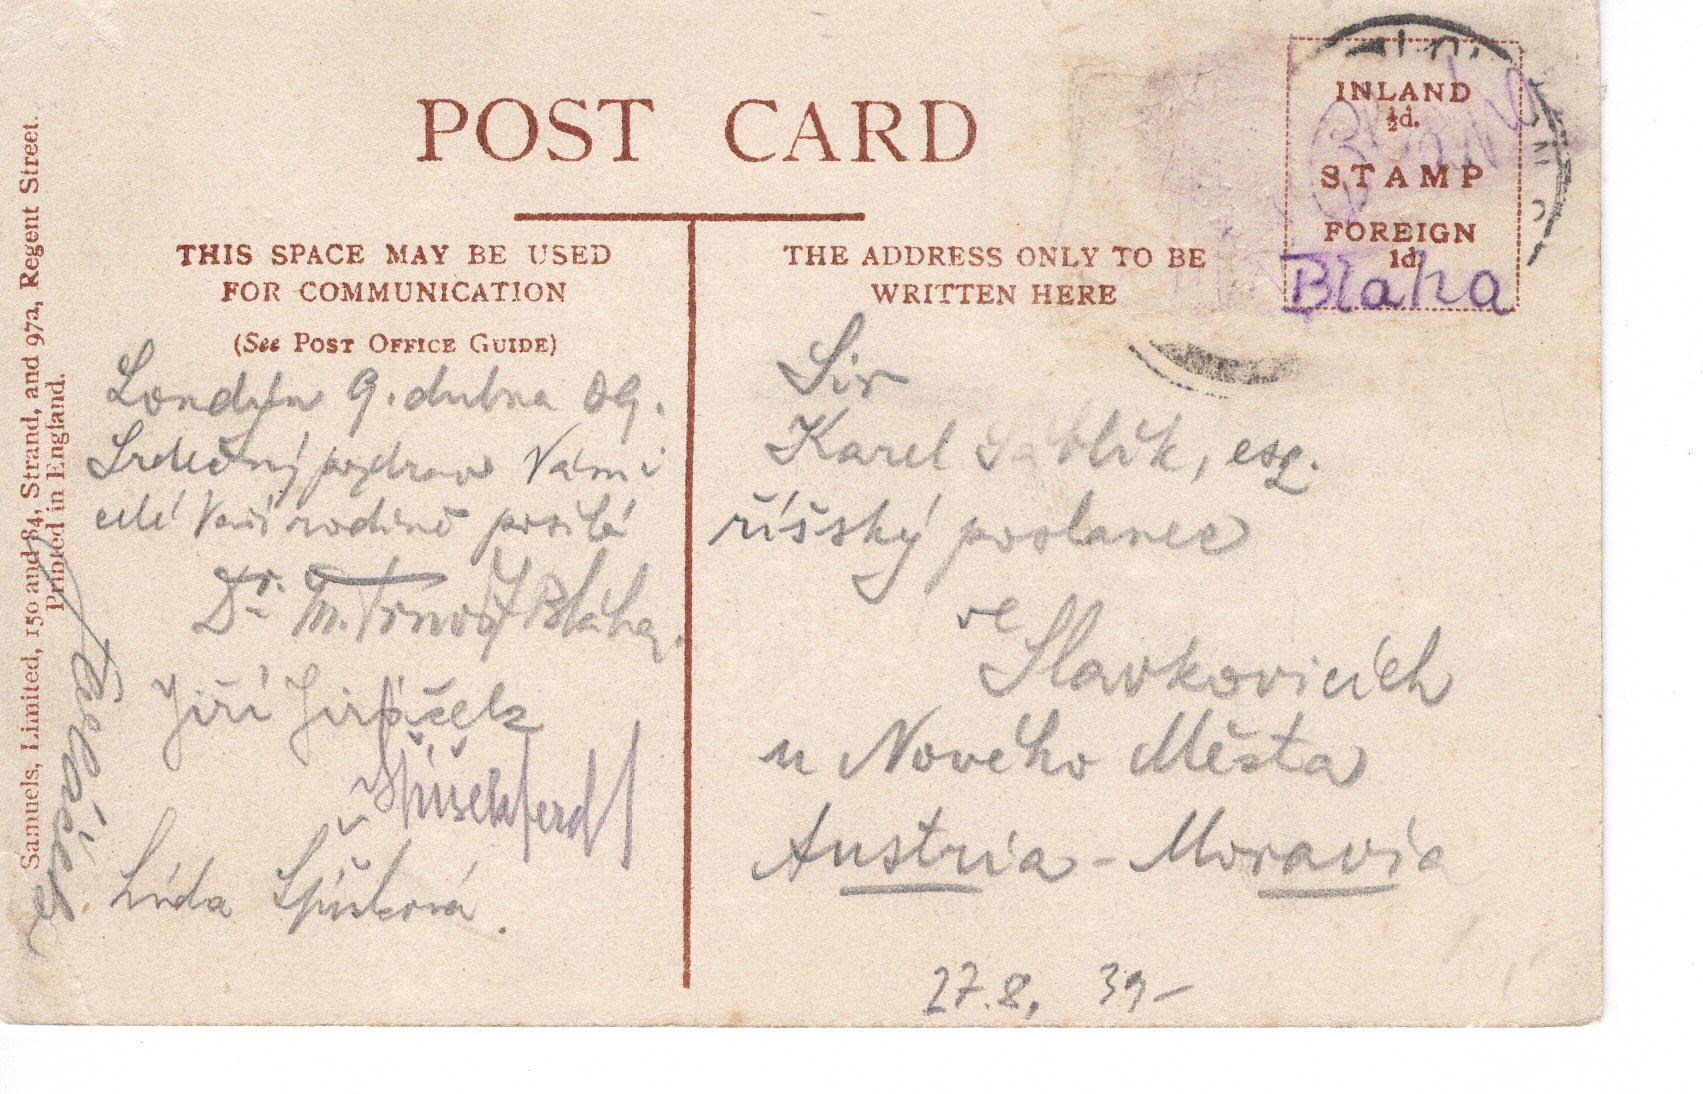 POST CARD
THIS SPACE MAY BE USED
FOR COMMUNICATION
(See POST OFFICE GUIDE)
Londýn 9. dubna 09.
Srdečný pozdrav Vám i
celé Vaší rodině posílá
Dr. Bláha.
Jiří Jiráček
Lída Špíšková.
Samuels, Limited, 150 and 84, Strand, and 97a, Regent Street.
Printed in England.
THE ADDRESS ONLY TO BE
WRITTEN HERE
INLAND
½d.
STAMP
FOREIGN
1d.
Blaha
Sir
Karel Sáblík, esq.
říšský poslanec
ve
Slavkovicích
u Nového Města
Austria - Moravia
27.8. 39-